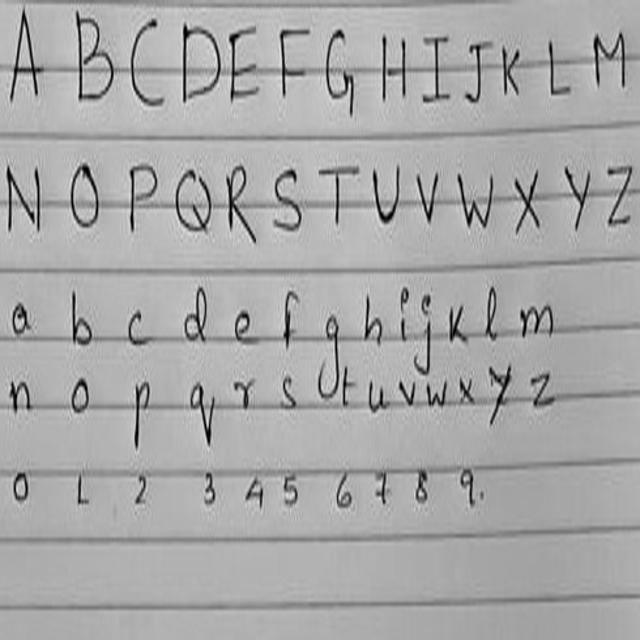 A B C D E F G H I J K L M
N O P Q R S T U V W X Y Z
a b c d e f g h i j k l m
n o p q r s t u v w x y z
0 1 2 3 4 5 6 7 8 9.